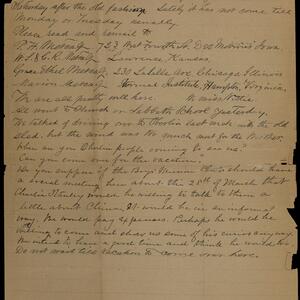 Yesterday after the old fashion. Lately it has not come till
Monday or Tuesday usually.
Please read and remit to
P. H. Metcalf, 723 West Fourth St. Des Moines Iowa.
W. D. & C. R. Metcalf Lawrence, Kansas.
Grace Ethel Metcalf, 230 LaSalle Ave, Chicago Illinois
Marion Metcalf Normal Institute, Hampton, Virginia.
We are all pretty well here.
No word to Church or Sabbath School yesterday.
We talked of driving over to Oberlin last week with the old
sled, but the wind was too much for the Mother.
When are you Oberlin people coming to see us?
Can you come for the vacation?
Do you suppose if the Boys' Mission Club should have
a social meeting here about the 25th of March that
Charlie Stanley would be willing to talk to them a
little about China. It would be in an informal
way. We would pay expenses. Perhaps he would be
willing to come and show us some of his curios anyway.
We intend to have a good time and think he would too.
Do not wait till vacation to come over here.